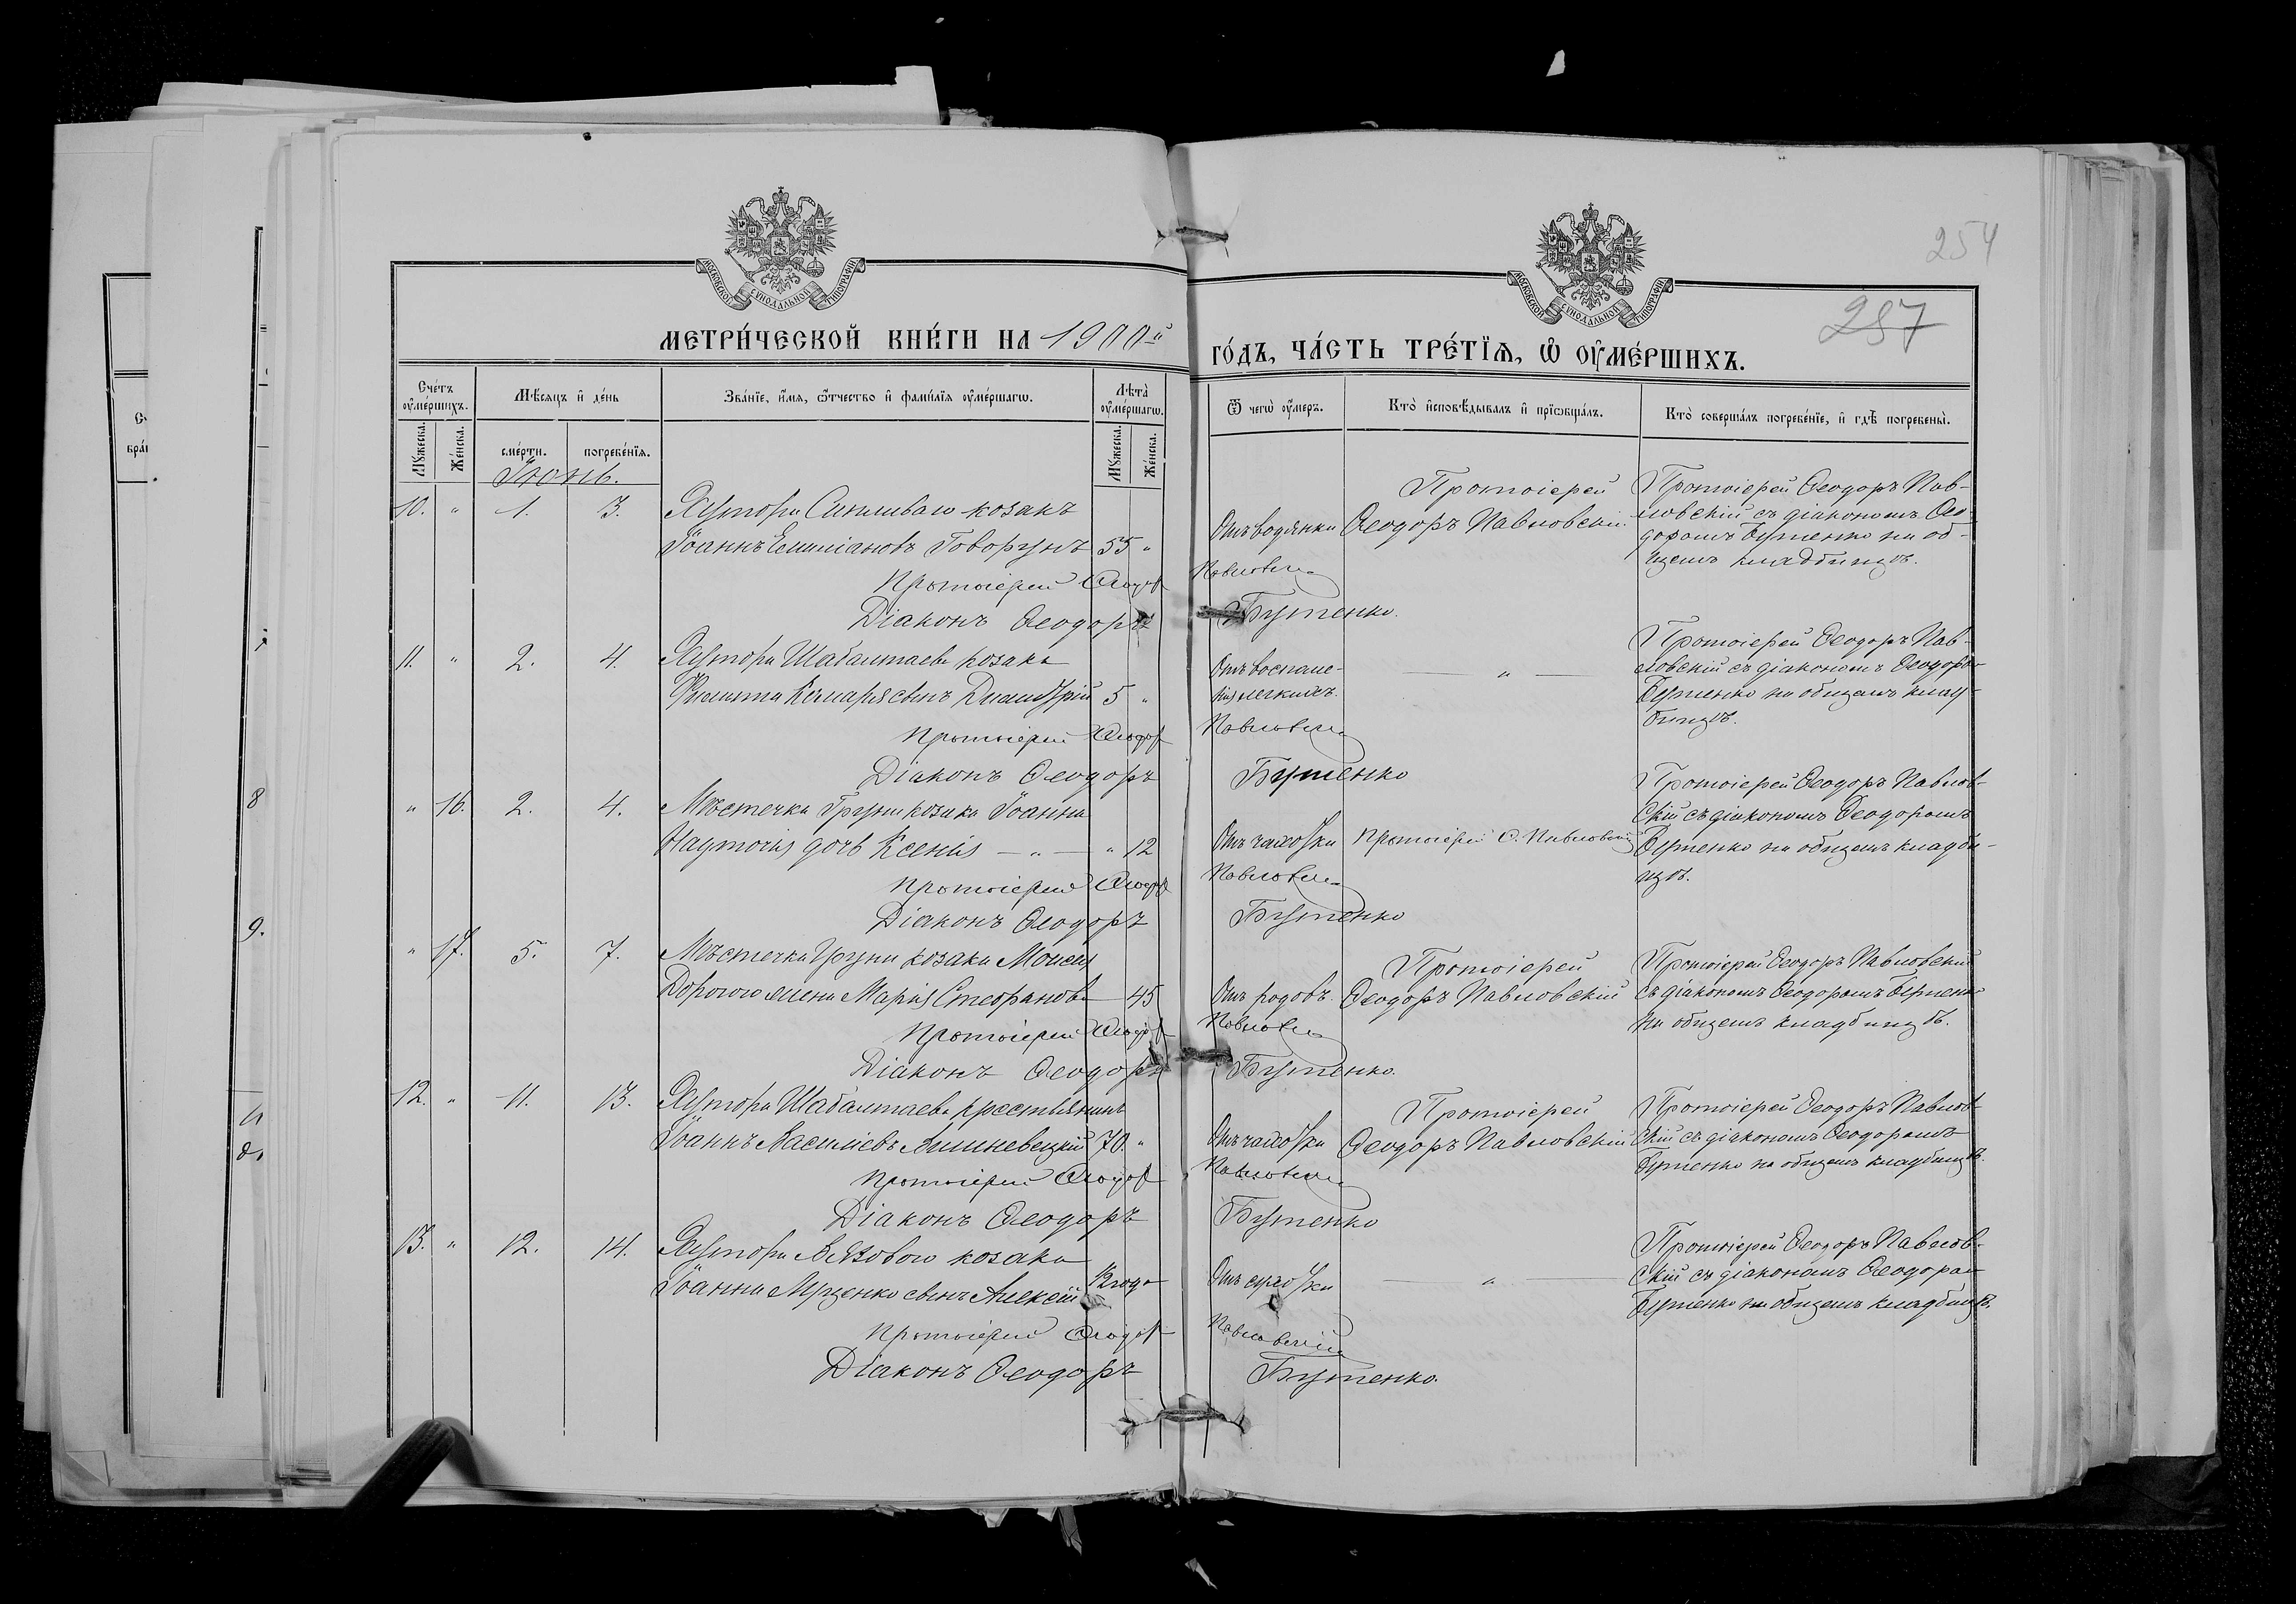 254
257
МОСКОВСКОЙ СУНОДАЛЬНОЙ ТИПОГРАФІИ
МОСКОВСКОЙ СУНОДАЛЬНОЙ ТИПОГРАФІИ
МЕТРИ́ЧЕСКОЙ КНИ́ГИ НА 1900й
ГО́ДЪ, ЧА́СТЬ ТРЕ́ТІѦ, Ѡ ОУМЕ́РШИХЪ.
Сче́тъ оуме́ршихъ.
Мꙋжеска. Же́нска.
Мѣсѧцъ и де́нь
сме́рти. погребе́нїѧ.
Зва́нїе, и́мѧ, ѻтчество и фами́лїѧ оуме́ршагѡ.
Лѣта̀ оуме́ршагѡ.
Мꙋжеска. Же́нска.
Ѿ чегѡ̀ оу́меръ.
Кто̀ исповѣ́дывалъ и прїѡбща́лъ.
Кто̀ соверша́лъ погребе́нїе, и гдѣ̀ погребены̀.
Іюнь.
10. " 1. 3. Хутора козакъ
Іоаннъ Емиліановъ Говорунъ 55 "
Отъ водянки
Протоіерей
Ѳеодоръ Павловскій
Протоіерей Ѳеодоръ Пав-
ловскій съ діакономъ Ѳео-
доромъ Бутенко на об-
щемъ кладбищѣ.
Протоіерей Ѳеодор Павловскій
Діаконъ Ѳеодоръ Бутенко.
11. " 2. 4. Хутора Шабалтаева козака
сынъ Димитрій 5 "
Отъ воспале-
нія легкихъ.
— " —
Протоіерей Ѳеодоръ Пав-
ловскій съ діакономъ Ѳеодоромъ
Бутенко на общемъ клад-
бищѣ.
Протоіерей Ѳеодор Павловскій
Діаконъ Ѳеодоръ Бутенко
" 16. 2. 4. Мѣстечка Груни козака Іоанна
дочь Ксенія — " — " 12
Отъ чахотки
Протоіерей Ѳ. Павловскій
Протоіерей Ѳеодоръ Павлов-
скій съ діакономъ Ѳеодоромъ
Бутенко на общемъ кладби-
щѣ.
Протоіерей Ѳеодор Павловскій
Діаконъ Ѳеодоръ Бутенко
" 17. 5. 7. Мѣстечка Груни козака Моисея
Дорогого жена Марія Стефанова 45
Отъ родовъ.
Протоіерей
Ѳеодоръ Павловскій
Протоіерей Ѳеодоръ Павловскій
съ діакономъ Ѳеодоромъ Бутенко
на общемъ кладбищѣ.
Протоіерей Ѳеодор Павловскій
Діаконъ Ѳеодоръ Бутенко.
12. " 11. 13. Хутора Шабалтаева крестьянинъ
Іоаннъ Василіевъ Вишневецкій 70. "
Отъ чахотки
Протоіерей
Ѳеодоръ Павловскій
Протоіерей Ѳеодоръ Павлов-
скій съ діакономъ Ѳеодоромъ
Бутенко на общемъ кладбищѣ.
Протоіерей Ѳеодор Павловскій
Діаконъ Ѳеодоръ Бутенко
13. " 12. 14. Хутора козака
Іоанна сынъ Алексій года
Отъ
— " —
Протоіерей Ѳеодоръ Павлов-
скій съ діакономъ Ѳеодором
Бутенко на общемъ кладбищѣ.
Протоіерей Ѳеодор Павловскій
Діаконъ Ѳеодоръ Бутенко.
8
9.